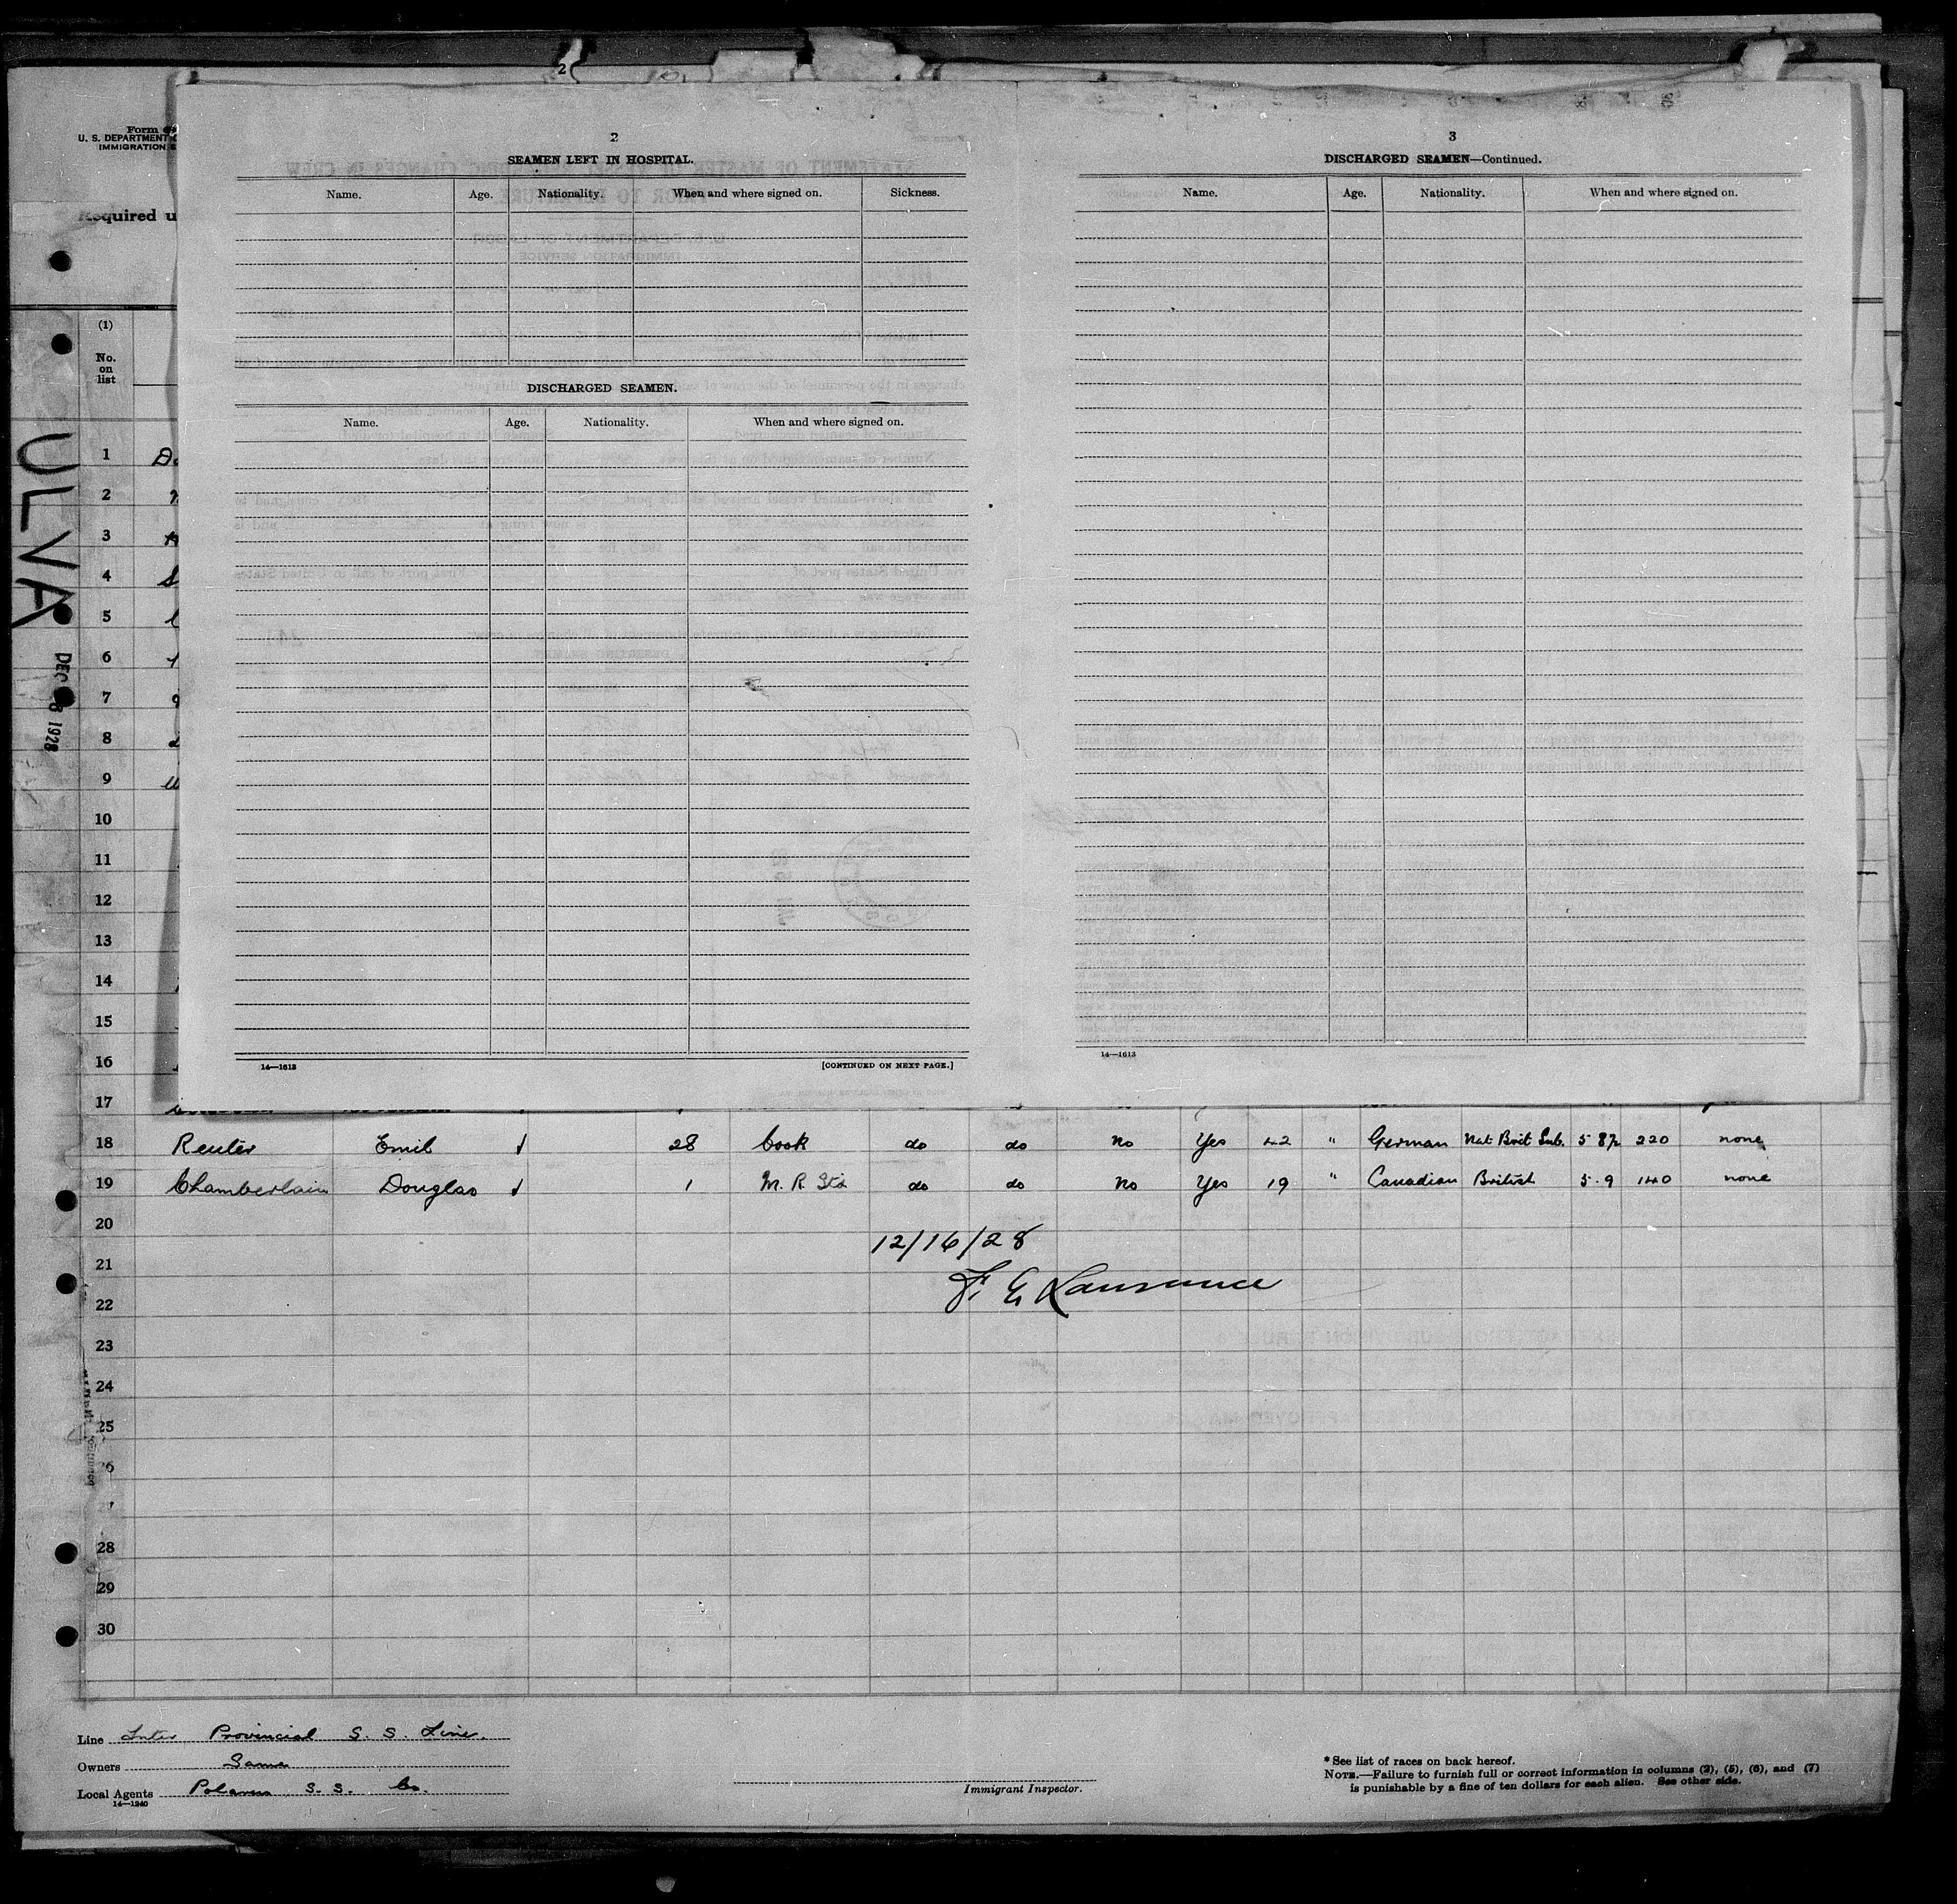 2
Form
U. S. DEPARTMENT
IMMIGRATION
Required u
(1)
No.
on
list
ULVA
DEC 1928
2
SEAMEN LEFT IN HOSPITAL.
Name. Age. Nationality. When and where signed on. Sickness.
DISCHARGED SEAMEN.
Name. Age. Nationality. When and where signed on.
14—1613 [CONTINUED ON NEXT PAGE.]
3
DISCHARGED SEAMEN—Continued.
Name. Age. Nationality. When and where signed on.
14—1613
1
2
3
4
5
6
7
8
9
10
11
12
13
14
15
16
17
18 Reuter Emil √ 28 Cook do do No Yes 42 " German Nat Brit Sub. 5 8½ 220 none
19 Chamberlain Douglas √ 1 M. R. Std do do No Yes 19 " Canadian British 5.9 140 none
20
12/16/28
21
F. E. Lawrance
22
23
24
25
28
29
30
Line Inter Provincial S. S. Line.
Owners Same
Local Agents S. S. Co.
14—1240
Immigrant Inspector.
* See list of races on back hereof.
NOTE.—Failure to furnish full or correct information in columns (2), (5), (6), and (7)
is punishable by a fine of ten dollars for each alien. See other side.